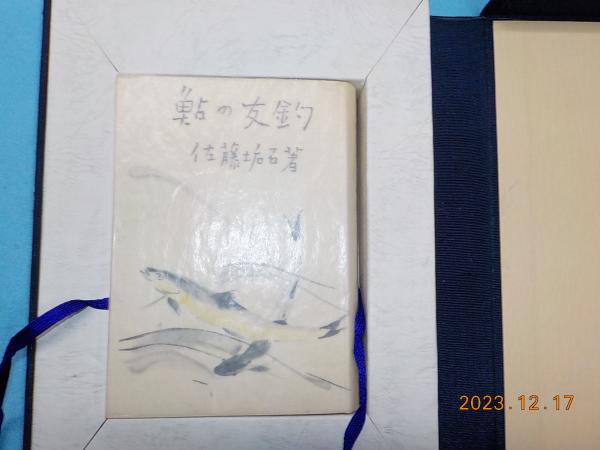 鮎の友釣
佐藤垢石著
2023.12.17